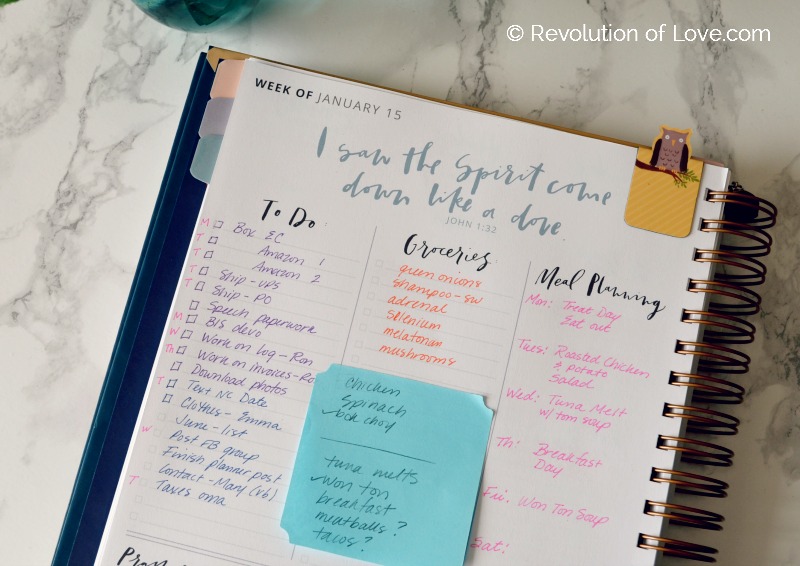 © Revolution of Love.com
WEEK OF JANUARY 15
I saw the Spirit come
down like a dove.
JOHN 1:32
To Do:
M Box EC
T Amazon 1
T Amazon 2
T Ship - UPS
T Ship - PO
Speech paperwork
M BIS devo
W Work on log - Ron
Th Work on invoices - Ro
Download photos
T Text NC Date
Clothes - Emma
June - list
W Post FB group
Finish planner post
Contact - Mary (vb)
T Taxes oma
Groceries:
green onions
shampoo - sw
adrenal
selenium
melatonin
mushrooms
chicken
Spinach
✓bok choy
tuna melts
✓won ton
breakfast
meatballs?
tacos?
Meal Planning
Mon: Treat Day
Eat out
Tues: Roasted Chicken
& potato
Salad
Wed: Tuna Melt
w/ tom soup
Th: Breakfast
Day
Fri: Won Ton Soup
Sat: